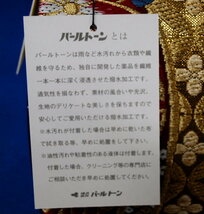 パールトーン とは
パールトーンは雨など水汚れから衣類や繊
維を守るため、独自に開発した薬品を繊維
一本一本に深く浸透させた撥水加工です。
通気性を損なわず、素材の風合いや光沢、
生地のデリケートな美しさを保ちますので
安心してご使用いただける撥水加工です。
※水汚れが付着した場合は早めに乾いた布
で拭き取る等、早めに処置してください。
※油性汚れや粘着性のある液体は付着します。
付着した場合、クリーニング等の専門店に
ご相談いただき早めに処置してください。
株式会社 パールトーン